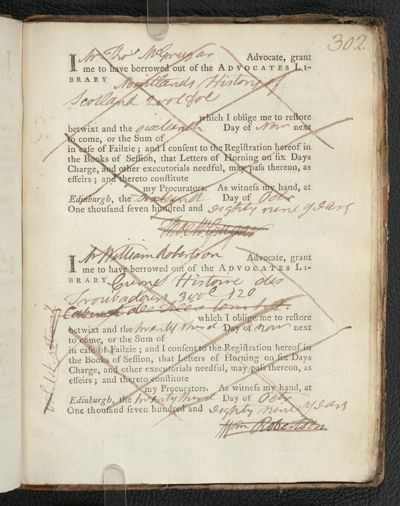 302
I Mr Thos McGrugar Advocate, grant
me to have borrowed out of the ADVOCATES LI-
BRARY Maitlands History of
Scotland 2 vol fol
which I oblige me to restore
betwixt and the sixteenth Day of Novr next
to come, or the Sum of
in case of Failzie; and I consent to the Registration hereof in
the Books of Session, that Letters of Horning on six Days
Charge, and other executorials needful, may pass thereon, as
effeirs; and thereto constitute
my Procurators. As witness my hand, at
Edinburgh, the Day of Octr
One thousand seven hundred and eighty nine years
Thos McGrugar
I Mr William Robertson Advocate, grant
me to have borrowed out of the ADVOCATES LI-
BRARY Histoire des
Troubadours 3 vol 120
which I oblige me to restore
betwixt and the twenty third Day of Novr next
to come, or the Sum of
in case of Failzie; and I consent to the Registration hereof in
the Books of Session, that Letters of Horning on six Days
Charge, and other executorials needful, may pass thereon, as
effeirs; and thereto constitute
my Procurators. As witness my hand, at
Edinburgh, the twenty third Day of Octr
One thousand seven hundred and eighty nine years
Wm Robertson